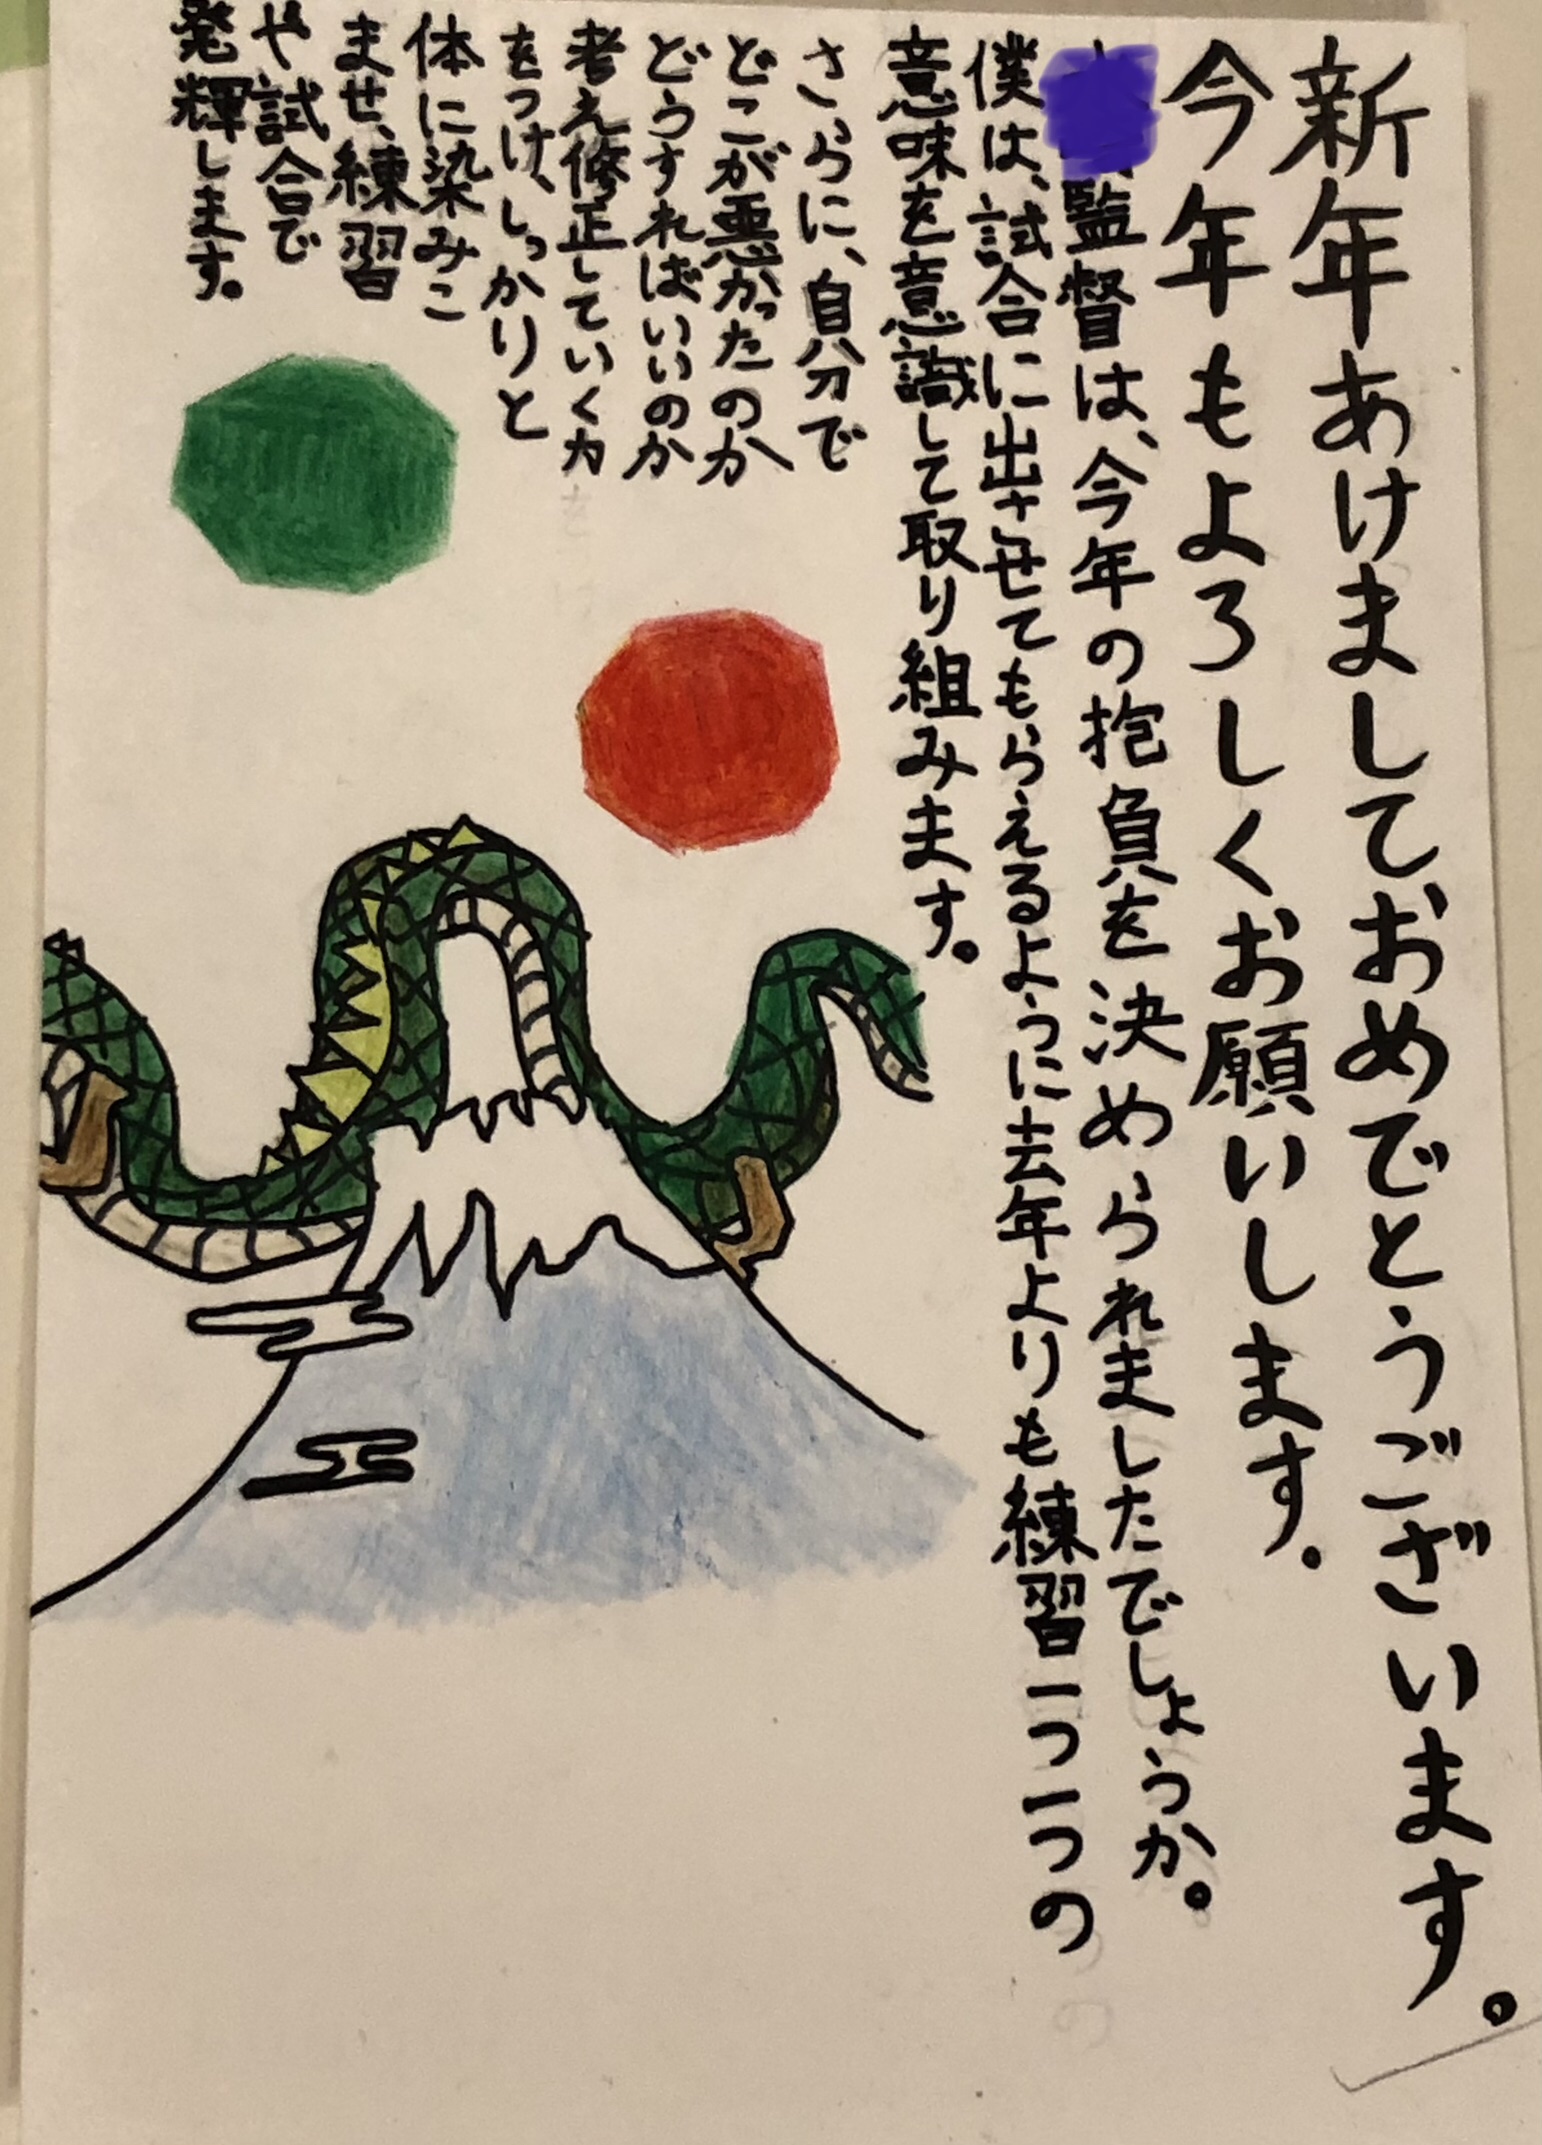 新年あけましておめでとうございます。
今年もよろしくお願いします。
監督は、今年の抱負を決められましたでしょうか。
僕は、試合に出させてもらえるように去年よりも練習一つ一つの
意味を意識して取り組みます。
さらに、自分で
どこが悪かったのか
どうすればいいのか
考え修正していく力
をつけ、しっかりと
体に染みこ
ませ、練習
や試合で
発揮します。